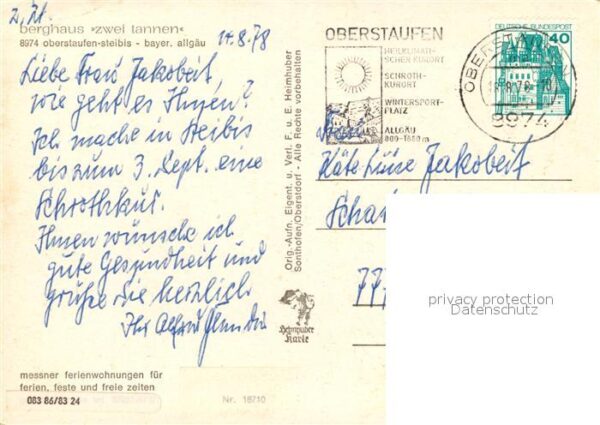 z. Zt.
berghaus »zwei tannen«
8974 oberstaufen-steibis - bayer. allgäu
14.8.78
Liebe Frau Jakobeit,
wie geht es Ihnen?
Ich mache in Steibis
bis zum 3. Sept. eine
Schrothkur.
Ihnen wünsche ich
gute Gesundheit und
grüße Sie herzlich
Ihr Alfred
messner ferienwohnungen für
ferien, feste und freie zeiten
083 86/83 24
Nr. 18710
Orig.-Aufn. Eigent. u. Verl. F. u. E. Heimhuber
Sonthofen/Oberstdorf - Alle Rechte vorbehalten
Heimhuber
Karte
OBERSTAUFEN
HEILKLIMATI-
SCHER KURORT
SCHROTH-
KURORT
WINTERSPORT-
PLATZ
ALLGÄU
DEUTSCHE BUNDESPOST
40
8974
Frau
Käte Luise Jakobeit
privacy protection
Datenschutz